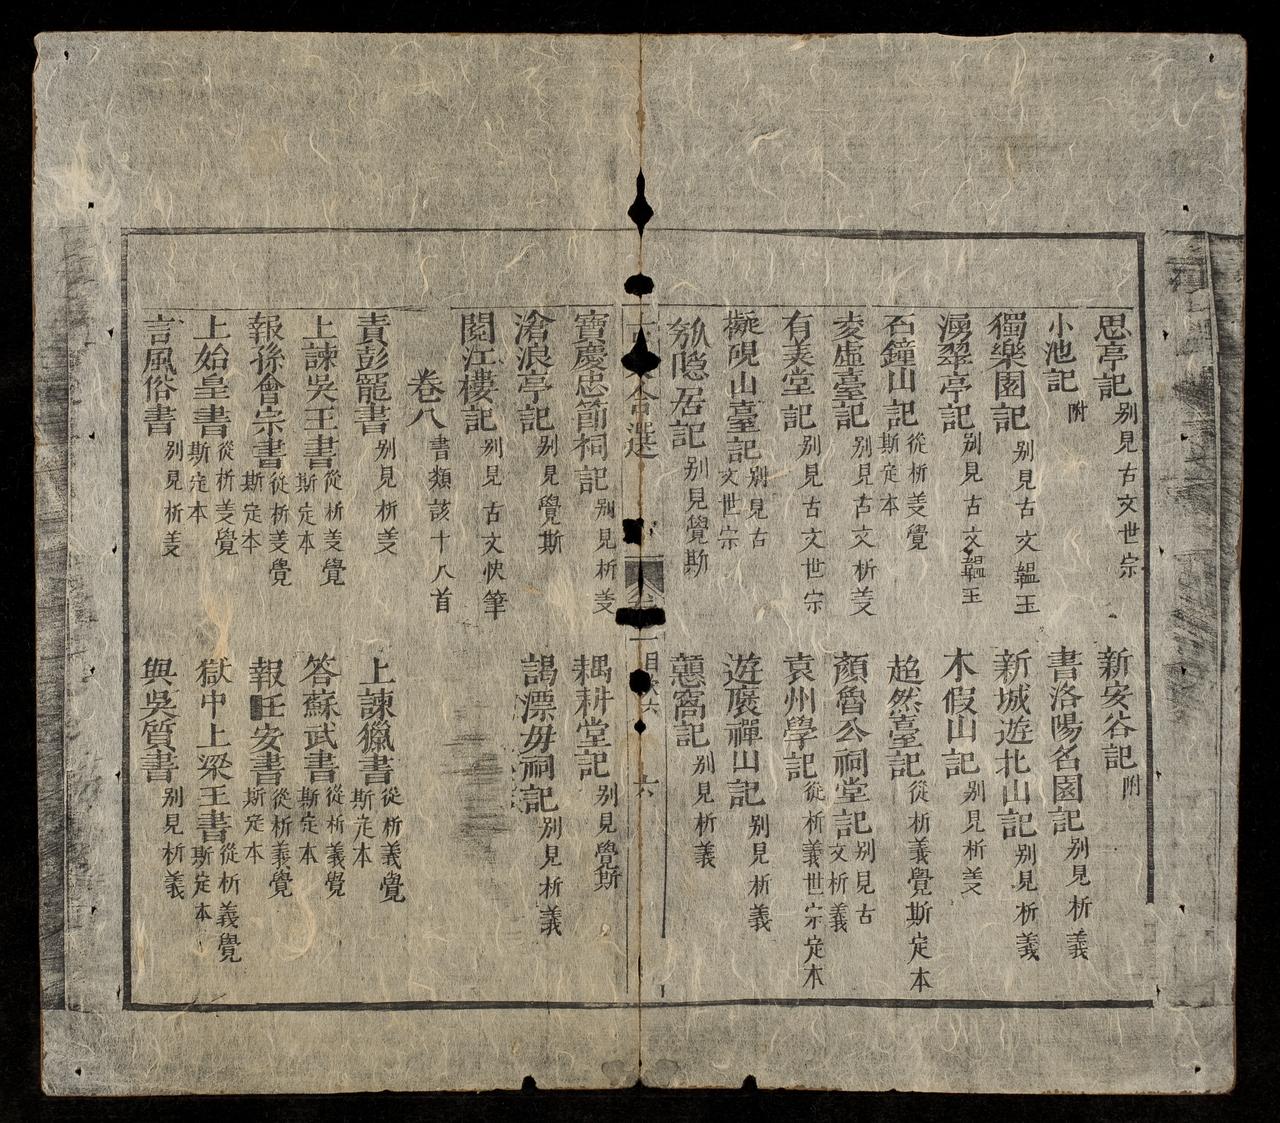 思亭記 别見古文世宗 新安谷記 附
小池記 附 書洛陽名園記 别見析義
獨樂園記 别見古文韞玉 新城遊北山記 别見析義
湧翠亭記 别見古文韞玉 木假山記 别見析義
石鐘山記 從析義覺斯定本 超然臺記 從析義覺斯定本
凌虛臺記 别見古文析義 顏魯公祠堂記 别見古文析義
有美堂記 别見古文世宗 袁州學記 從析義世宗定本
擬硯山臺記 别見古文世宗 遊褒禪山記 别見析義
隐居記 别見覺斯 窩記 别見析義
選 卷 一 目 六 六
寶慶忠節祠記 别見析義 耦耕堂記 别見覺斯
滄浪亭記 别見覺斯 謁漂毋祠記 别見析義
閱江樓記 别見古文快筆
卷八 書類該十八首
責彭寵書 别見析義 上諫獵書 從析義覺斯定本
上諫吳王書 從析義覺斯定本 答蘇武書 從析義覺斯定本
報孫會宗書 從析義覺斯定本 報任安書 從析義覺斯定本
上始皇書 從析義覺斯定本 獄中上梁王書 從析義覺斯定本
言風俗書 别見析義 與吳質書 别見析義